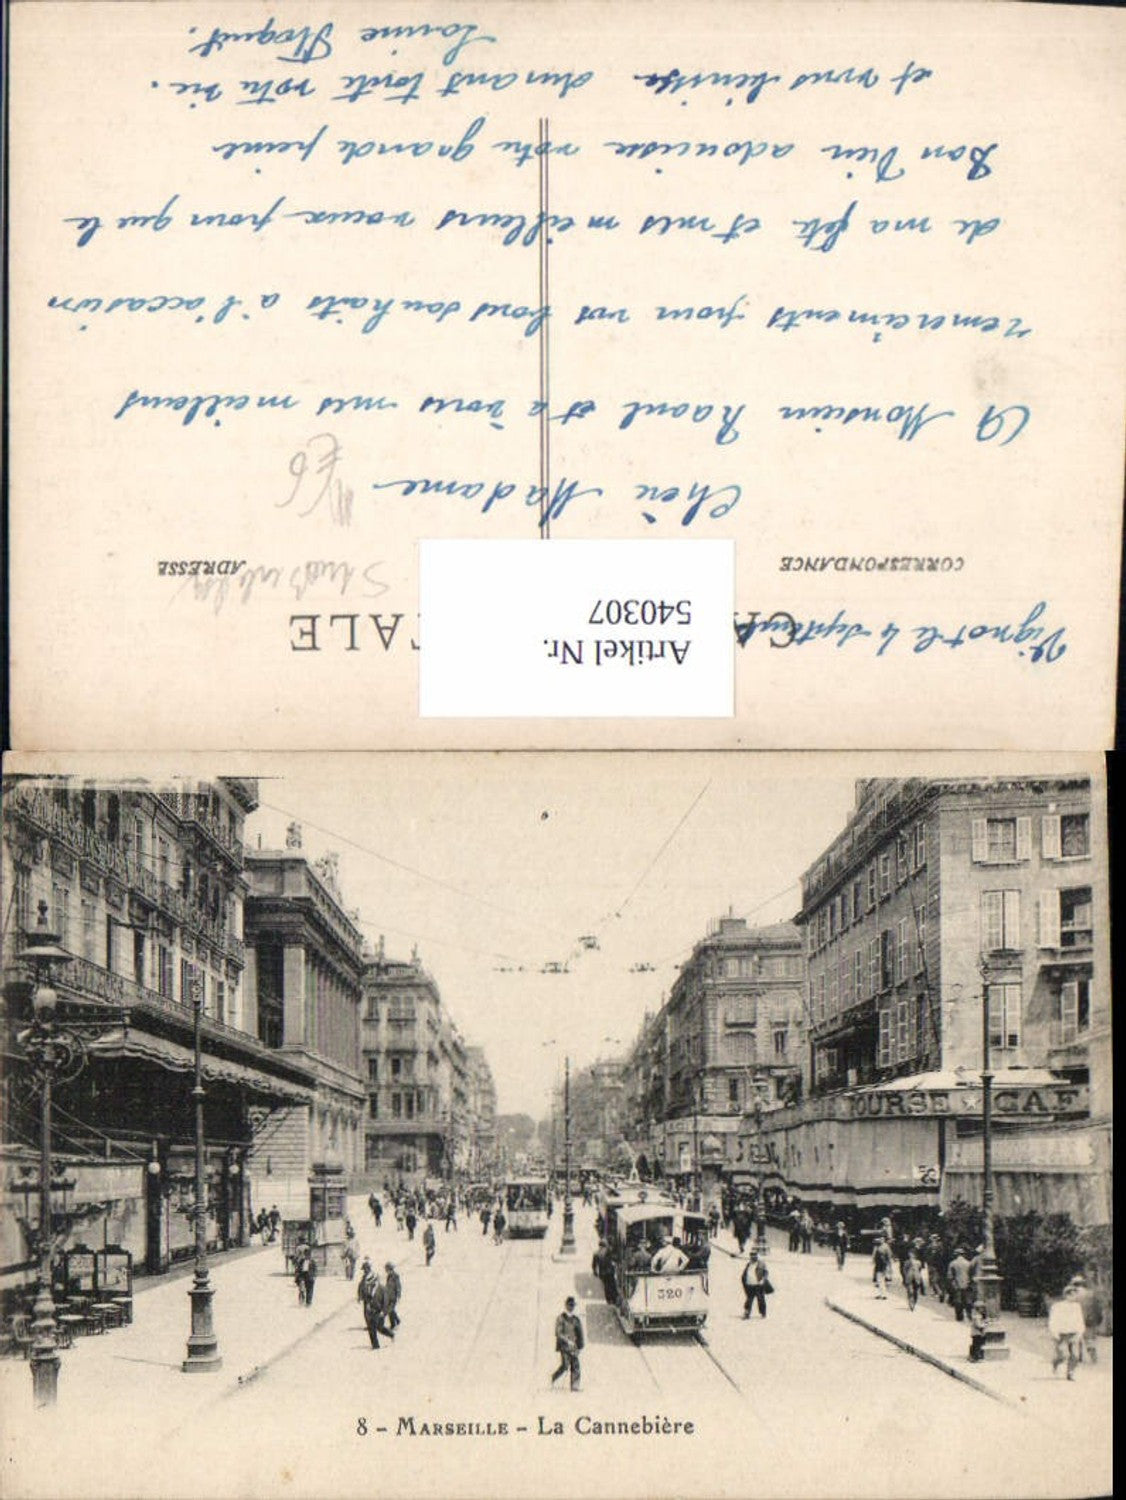 CA TALE
Vignot le 4 Septembre
CORRESPONDANCE
ADRESSE
Artikel Nr.
540307
Chère Madame
A Monsieur Raoul et à vous mes meilleurs
remerciments pour vos bons souhaits à l'occasion
de ma fête et mes meilleurs voeux pour que le
Bon Dieu adoucisse votre grande peine
et vous bénisse durant toute votre vie.
BOURSE CAF
320
8 - MARSEILLE - La Cannebière